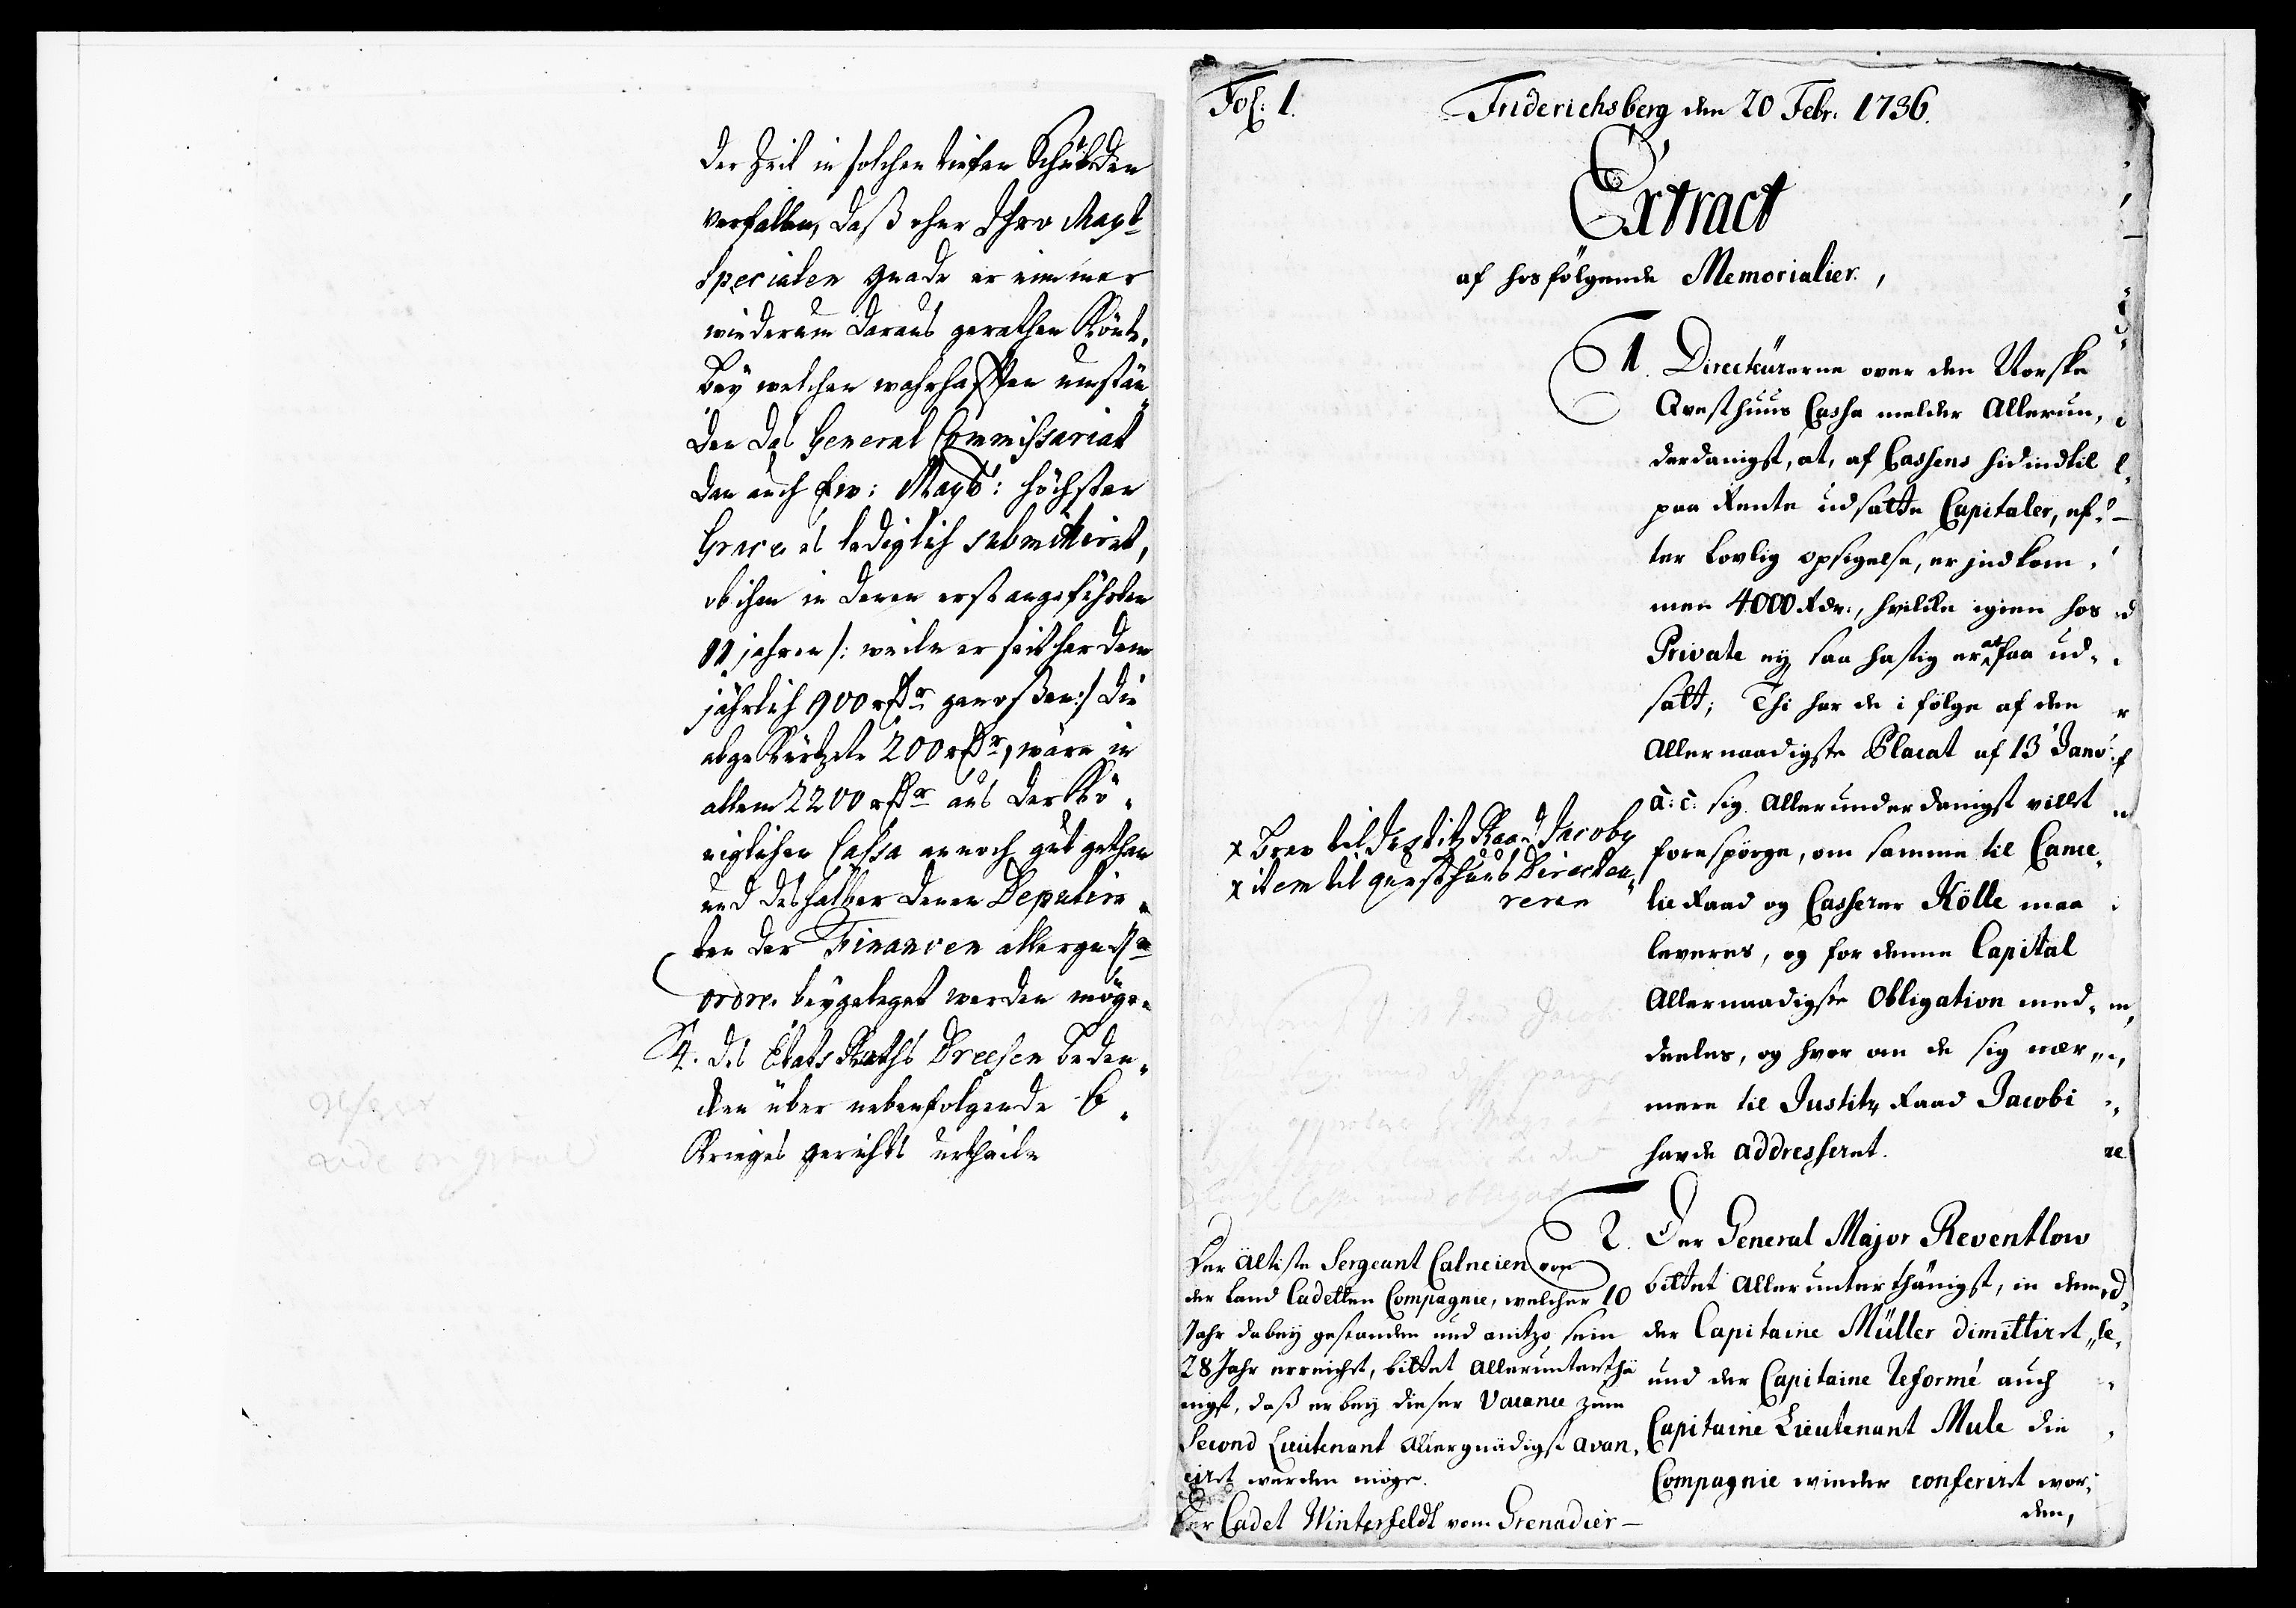 der Zeit in solchen tiefen Schulden
verfallen, daß ohne Ihro Mayt
specialen gnade er nimmer
wiederum daraus gerathen Könte,
Bey welchen wahrhafften umstän„
den das General Commissariat
den auch Ew: Mayt: höchsten
Grace es lediglich submittiret,
ob ihm in denen erst angeführten
11 jahren /: weilen er seit her dem
jährlich 900 rdr genoßen :/ die
abgekürtzete 200 rdr, wären in
allem 2200 rdr aus der Kö„
niglichen Cassa annoch gut gethan
und deshalber denen Deputir„
ten der Financen allergndste
ordre beygeleget werden möge.
4. des Etats Raths Dreesen beden„
cken über nebenfolgende 6
Kriegs gerichts urtheile
Fol: 1. Friderichsberg den 20 Febr. 1736.
Extract
af hosfölgende Memorialier,
1. Directeürerne over den Norske
Qvesthuus Cassa melder Allerun„
derdanigst, at, af Cassens hidindtil
paa Rente udsatte Capitaler, ef„
ter Lovlig opsigelse, er indkom„
men 4000 Rdr., hvilke igien hos
Private ey saa hastig er at faa ud„
satt; Thi har de i fölge af den
Allernaadigste Placat af 13 Janv:
a: c: sig Allerunderdanigst villet
forespörge, om samme til Cance„
lie Raad og Casserer Kölle maa
leveres, og for denne Capital
Allernaadigste Obligation med„
deeles, og hvor om de sig nær„
mere til Justitz Raad Jacobi
havde addresseret.
x brev til Justitz Raad Jacoby
x item til questhuus Directeu„
reren
2. Der General Major Reventlow
bittet Allerunterthänigst, in dem
der Capitaine Müller dimittiret
und der Capitaine Reformé auch
Capitaine Lieutenant Mule die
Compagnie wieder conferiret wor„
den,
Der ältiste Sergeant Calneien von
der Land Cadetten Compagnie, welcher 10
Jahr dabey gestanden und anitzo sein
28 Jahr erreicht, bittet Allerunterthä
nigst, daß er bey dieser Vacance zum
Second Lieutenant Allergnädigst avan„
ciret werden möge.
Der Cadet Winterfeldt vom Grenadier—